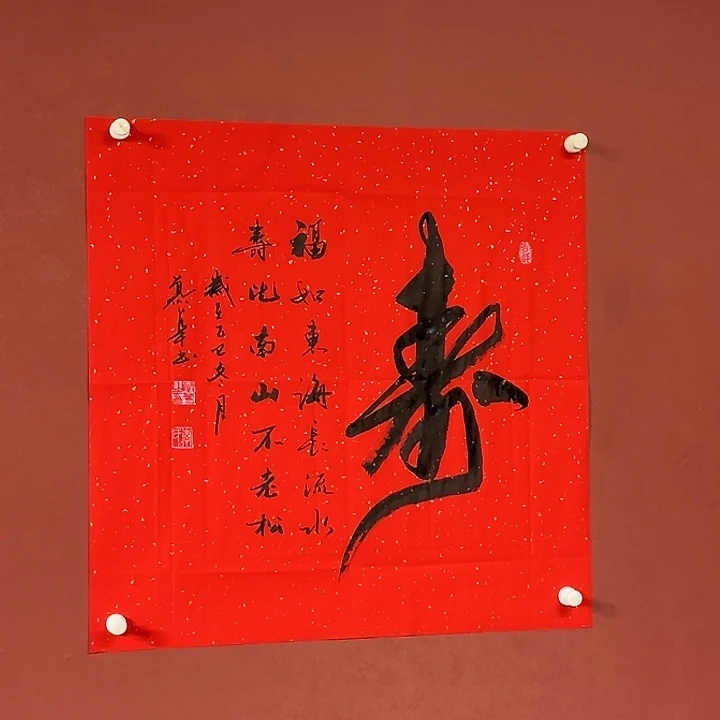 寿
福如東海長流水
壽比南山不老松
歲在乙巳冬月
書